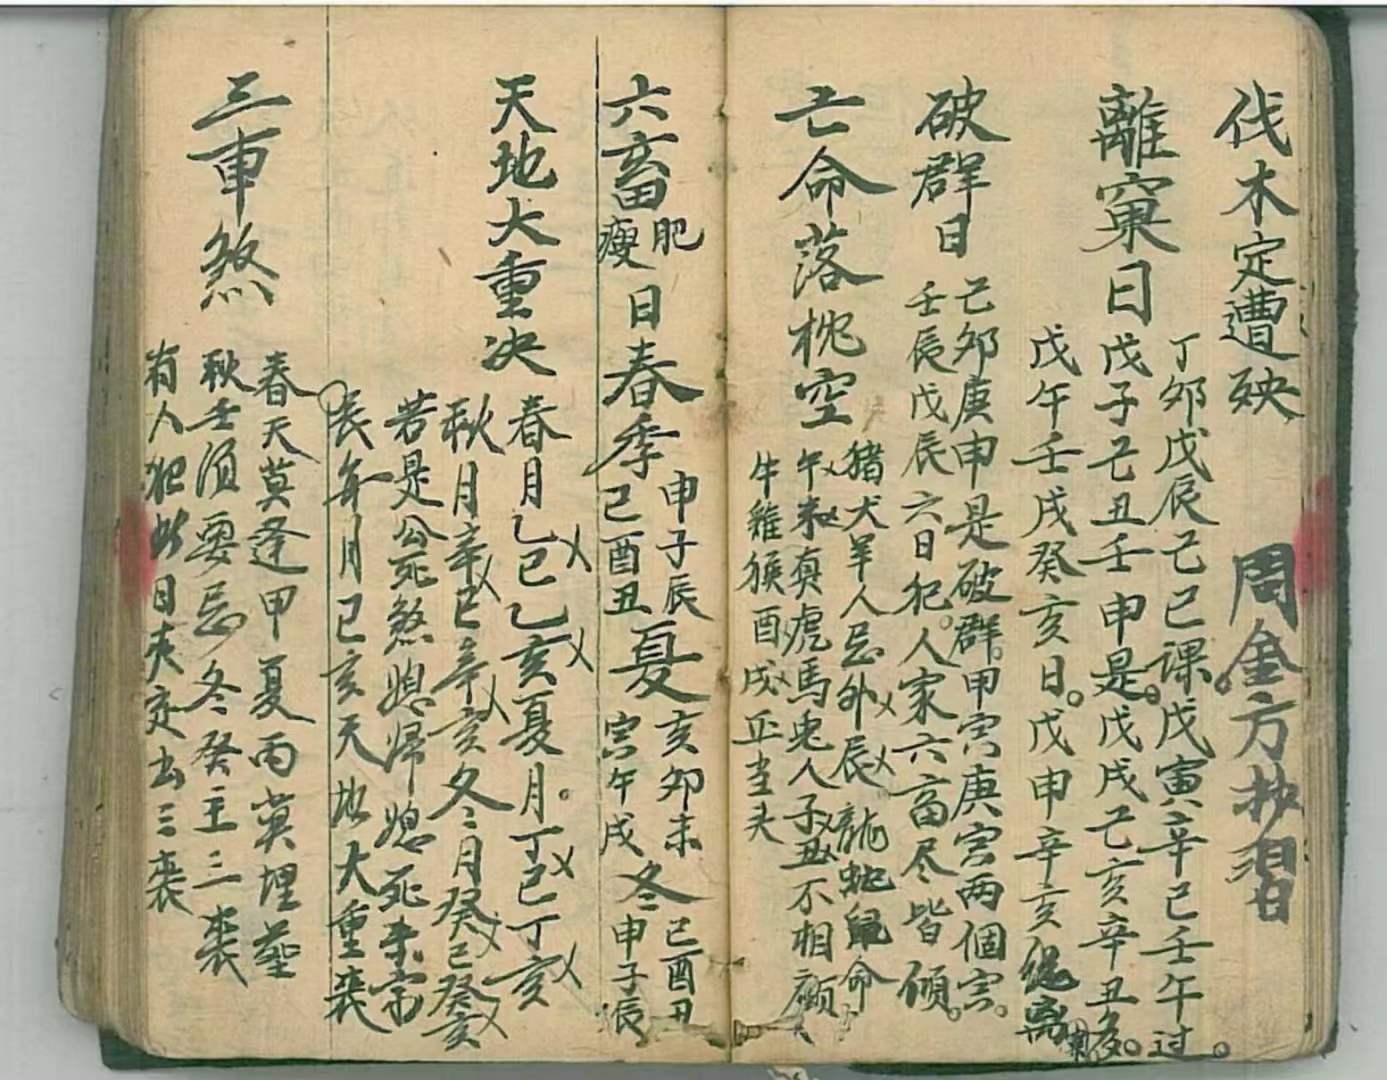 伐木定遭殃
周金方抄習
離窠日
丁卯戊辰己巳課。戊寅辛巳壬午过。
戊子己丑壬申是。戊戌己亥辛丑多。
戊午壬戌癸亥日。戊申辛亥總離窠
破群日
己卯庚申是破群。甲寅庚寅两個寅。
壬辰戊辰六日犯。人家六畜尽皆傾。
亡命落枕空
猪犬羊人忌卯辰 龍蛇鼠命
午未寅虎馬兔人子丑不相顧
牛雞猴酉戌丘当头
六畜肥瘦日
春季
申子辰
巳酉丑
夏
亥卯未
寅午戌
冬
巳酉丑
申子辰
天地大重决
春月乙巳乙亥夏月。丁巳丁亥
秋月辛巳辛亥冬月癸巳癸亥
若是公死煞媳歸媳死末宗
長年月巳亥天地大重丧
三車煞
春天莫逢甲夏丙莫埋塟
秋壬須要忌冬癸主三丧
有人犯此日夫定出三丧